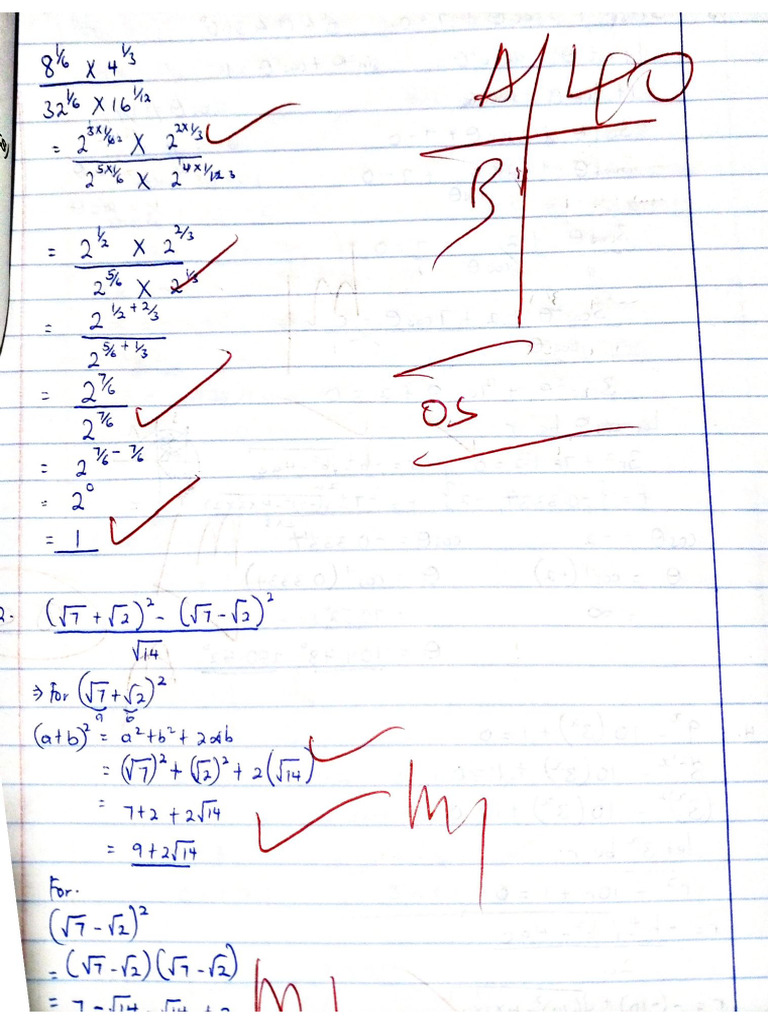 8^1/6 × 4^1/3
32^1/6 × 16^1/12
= 2^3×1/6 2 × 2^2×1/3
2^5×1/6 × 2^4×1/12 3
= 2^1/2 × 2^2/3
2^5/6 × 2^1/3
= 2^1/2 + 2/3
2^5/6 + 1/3
= 2^7/6
2^7/6
= 2^7/6 - 7/6
= 2^0
= 1
A 40
B
05
2. (√7 + √2)^2 - (√7 - √2)^2
√14
⇒ For (√7 + √2)^2
a b
(a+b)^2 = a^2 + b^2 + 2ab
= (√7)^2 + (√2)^2 + 2(√14)
= 7+2 + 2√14
= 9 + 2√14
For.
(√7 - √2)^2
= (√7 - √2)(√7 - √2)
= 7 - √14 - √14 + 2